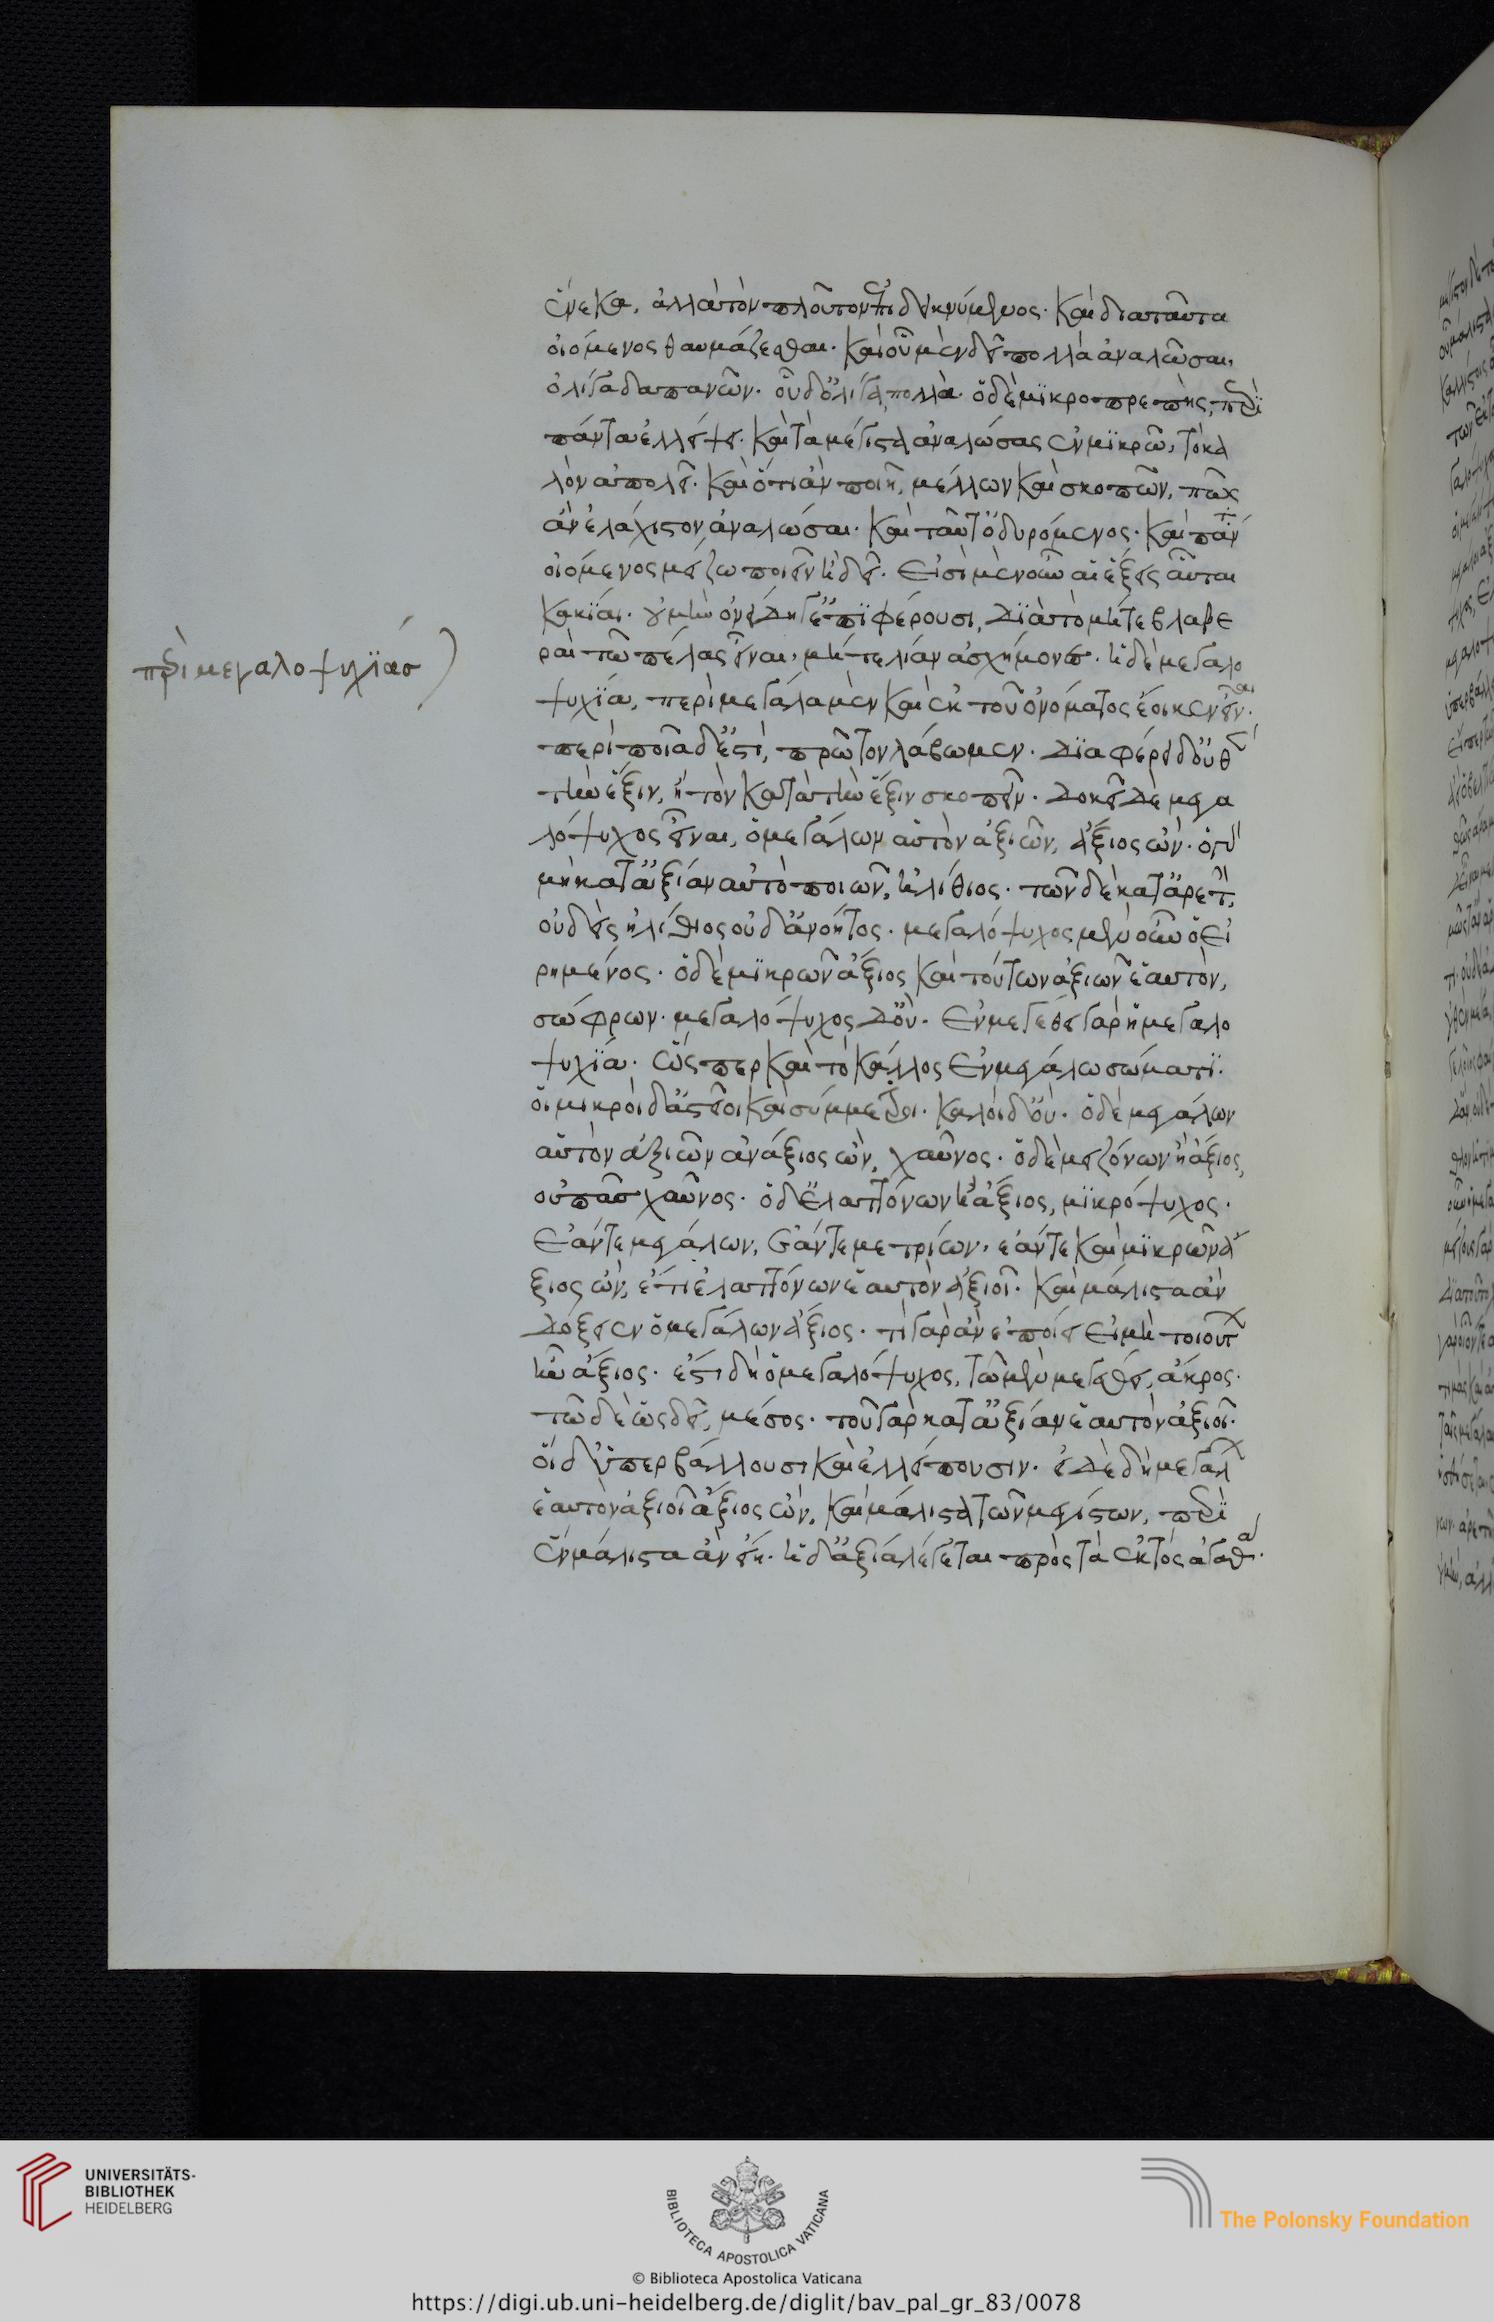 ἕνεκα, ἀλλὰ τὸν πλοῦτον ἐπιδεικνύμενος. καὶ διὰ ταῦτα
οἰόμενος θαυμάζεσθαι. καὶ οὗ μὲν δεῖ πολλὰ ἀναλῶσαι,
ὀλίγα δαπανῶν. οὗ δ' ὀλίγα, πολλά. ὁ δὲ μϊκροπρεπὴς, περὶ
πάντα ἐλλείψει. καὶ τὰ μέγιστα ἀναλώσας ἐν μϊκρῶ, τὸ κα
λὸν ἀπολεῖ. καὶ ὅτι ἂν ποιῆ, μέλλων καὶ σκοπῶν, πῶς
ἂν ἐλάχιστον ἀναλώσαι. καὶ ταῦτ' ὀδυρόμενος. καὶ πάντ'
οἰόμενος μείζω ποιεῖν ἢ δεῖ. εἰσὶ μὲν οὖν αἱ ἕξεις αὗται
κακΐαι. οὐ μὴν ὀνείδη γ' ἐπϊφέρουσι, δϊὰ τὸ μήτε βλαβε
ραὶ τῶ πέλας εἶναι, μήτε λίαν ἀσχήμονες. ἡ δὲ μεγαλο
περὶ μεγαλοψυχϊας
ψυχϊα, περὶ μεγάλα μὲν καὶ ἐκ τοῦ ὀνόματος ἔοικεν εἶναι.
περὶ ποῖα δ' ἐστὶ, πρῶτον λάβωμεν. δϊαφέρει δ' οὐθὲν
τὴν ἕξιν, ἢ τὸν κατὰ τὴν ἕξιν σκοπεῖν. δοκεῖ δὲ μεγα
λόψυχος εἶναι, ὁ μεγάλων αὑτὸν ἀξιῶν, ἄξιος ὤν. ὁ γὰρ
μὴ κατ' ἀξίαν αὐτὸ ποιῶν, ἠλίθιος. τῶν δὲ κατ' ἀρετὴν,
οὐδεὶς ἠλίθιος οὐδ' ἀνόητος. μεγαλόψυχος μὲν οὖν ὁ εἰ
ρημένος. ὁ δὲ μϊκρῶν ἄξιος καὶ τούτων ἀξιῶν ἑαυτὸν,
σώφρων. μεγαλόψυχος δ' οὔ. ἐν μεγέθει γὰρ ἡ μεγαλο
ψυχϊα. ὥσπερ καὶ τὸ κάλλος ἐν μεγάλω σώματϊ.
οἱ μικροὶ δ' ἀστεῖοι καὶ σύμμετροι. καλοὶ δ' οὔ. ὁ δὲ μεγάλων
αὑτὸν ἀξιῶν ἀνάξιος ὢν, χαῦνος. ὁ δὲ μειζόνων ἢ ἄξιος,
οὐ πᾶς χαῦνος. ὁ δ' ἐλαττόνων ἢ ἄξιος, μϊκρόψυχος.
ἐάν τε μεγάλων, ἐάν τε μετρίων, ἐάν τε καὶ μϊκρῶν ἄ
ξιος ὢν, ἔτι ἐλαττόνων ἑαυτὸν ἀξιοῖ. καὶ μάλιστα ἂν
δόξειεν ὁ μεγάλων ἄξιος. τί γὰρ ἂν ἐποίει εἰ μὴ τοιούτων
ἦν ἄξιος. ἔστι δὴ ὁ μεγαλόψυχος, τῶ μὲν μεγέθει, ἄκρος.
τῶ δὲ ὡς δεῖ, μέσος. τοῦ γὰρ κατ' ἀξίαν ἑαυτὸν ἀξιοῖ.
οἱ δ' ὑπερβάλλουσι καὶ ἐλλείπουσιν. εἰ δὲ δὴ μεγάλων
ἑαυτὸν ἀξιοῖ ἄξιος ὢν, καὶ μάλιστα τῶν μεγίστων, περὶ
ἓν μάλιστα ἂν εἴη. ἡ δ' ἀξία λέγεται πρὸς τὰ ἐκτὸς ἀγαθά.
UNIVERSITÄTS-
BIBLIOTHEK
HEIDELBERG
BIBLIOTECA APOSTOLICA VATICANA
The Polonsky Foundation
© Biblioteca Apostolica Vaticana
https://digi.ub.uni-heidelberg.de/diglit/bav_pal_gr_83/0078